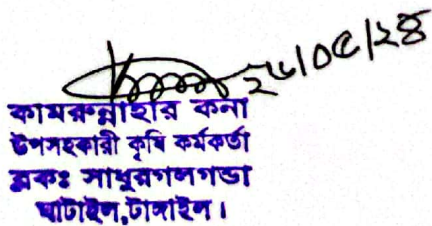 ২৮/০৫/২৪
কামরুন্নাহার কনা
উপসহকারী কৃষি কর্মকর্তা
ব্লকঃ সাধুরগলগন্ডা
ঘাটাইল,টাঙ্গাইল।